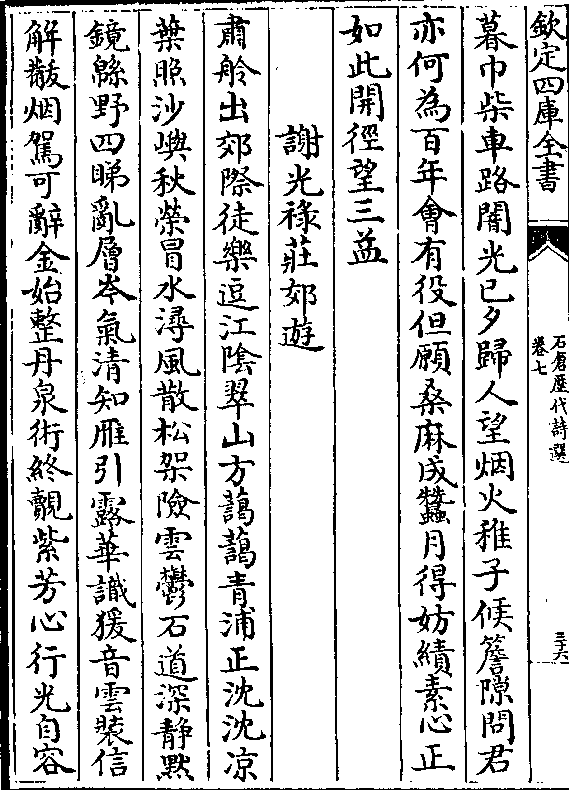 欽定四庫全書
石倉歷代詩選
卷七
三六
暮巾柴車路闇光已夕歸人望烟火稚子候簷隙問君
亦何為百年會有役但願桑麻成蠶月得紡績素心正
如此開徑望三益
謝光祿莊郊遊
肅舲出郊際徒樂逗江陰翠山方藹藹青浦正沈沈凉
葉照沙嶼秋榮冒水潯風散松架險雲鬱石道深靜默
鏡緜野四睇亂層岑氣清知雁引露華識猨音雲裝信
解黻烟駕可辭金始整丹泉術終覿紫芳心行光自容